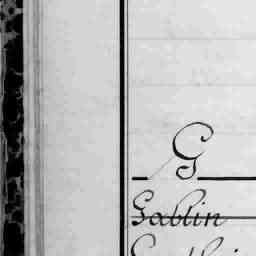 G
Gablin